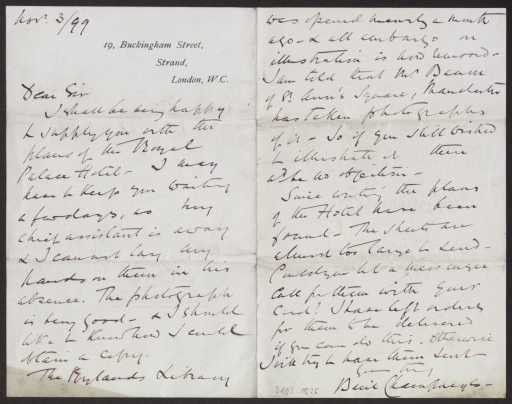 Nov. 3/99
19, Buckingham Street,
Strand,
London, W.C.
Dear Sir
I shall be very happy
to supply you with the
plans of the Royal
Palace Hotel - I may
have to keep you waiting
a few days, as my
chief assistant is away
& I cannot lay my
hands on them in his
absence. The photograph
is very good - & I should
like to know how I could
obtain a copy.
The Rylands Library
was opened nearly a month
ago - & all embargo on
illustration is now removed -
I am told that Mr
of St. Ann's Square, Manchester
has taken photographs
of it - So if you still wished
to illustrate it there
wd. be no objection -
Since writing the plans
of the Hotel have been
found - The sheets are
almost too large to send -
Could you let a messenger
call for them with your
Card? I have left orders
for them to be delivered
if you can do this - otherwise
I will try to have them sent
Basil Champneys -